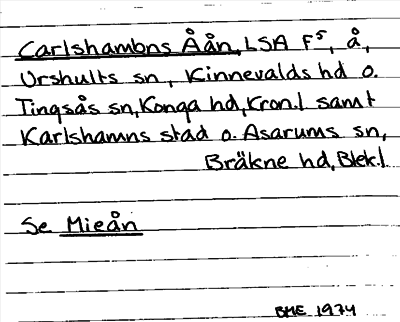 Carlshambns Åån, LSA F⁵, å,
Urshults sn, Kinnevalds hd o.
Tingsås sn, Konga hd, Kron.l samt
Karlshamns stad o. Asarums sn,
Bräkne hd, Blek.l
Se Mieån
BME 1974